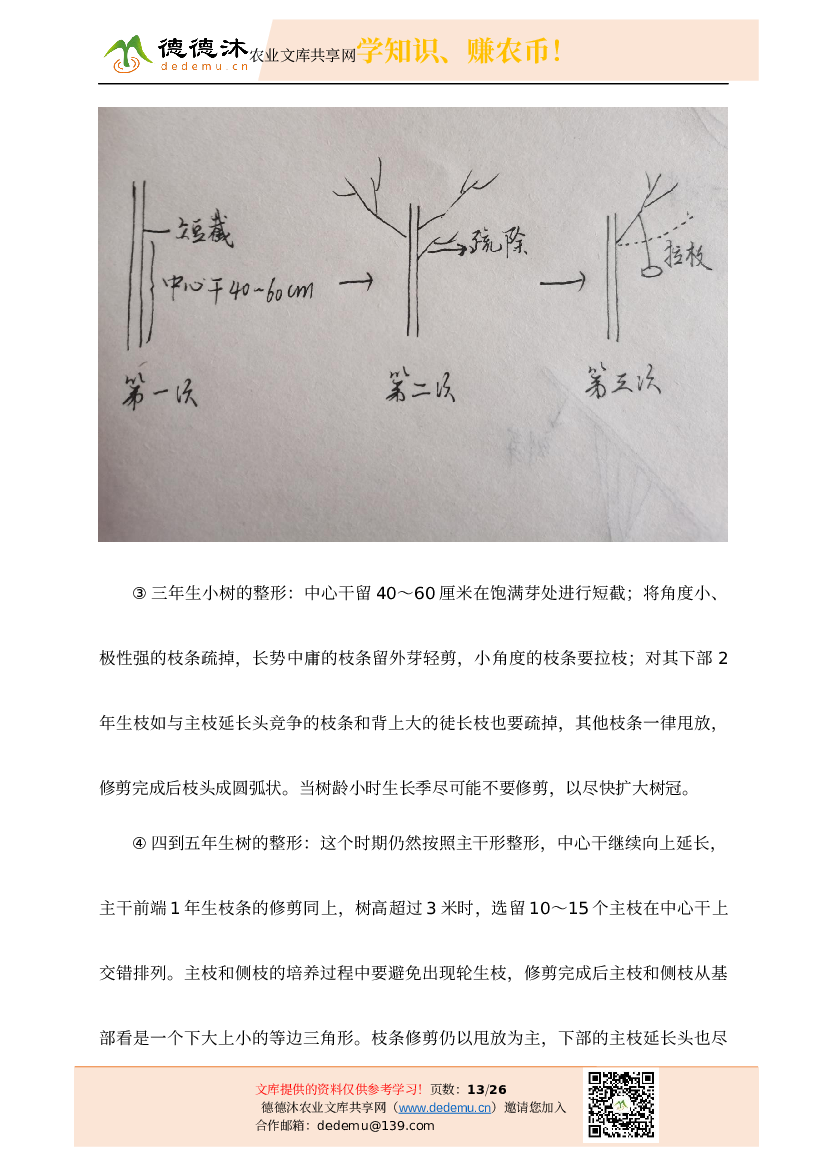 德德沐
dedemu.cn
农业文库共享网学知识、赚农币!
短截
中心干40~60cm
疏除
拉枝
第一次
第二次
第三次
③ 三年生小树的整形：中心干留 40～60 厘米在饱满芽处进行短截；将角度小、
极性强的枝条疏掉，长势中庸的枝条留外芽轻剪，小角度的枝条要拉枝；对其下部 2
年生枝如与主枝延长头竞争的枝条和背上大的徒长枝也要疏掉，其他枝条一律甩放，
修剪完成后枝头成圆弧状。当树龄小时生长季尽可能不要修剪，以尽快扩大树冠。
④ 四到五年生树的整形：这个时期仍然按照主干形整形，中心干继续向上延长，
主干前端 1 年生枝条的修剪同上，树高超过 3 米时，选留 10～15 个主枝在中心干上
交错排列。主枝和侧枝的培养过程中要避免出现轮生枝，修剪完成后主枝和侧枝从基
部看是一个下大上小的等边三角形。枝条修剪仍以甩放为主，下部的主枝延长头也尽
文库提供的资料仅供参考学习！页数：13/26
德德沐农业文库共享网（www.dedemu.cn）邀请您加入
合作邮箱：dedemu@139.com